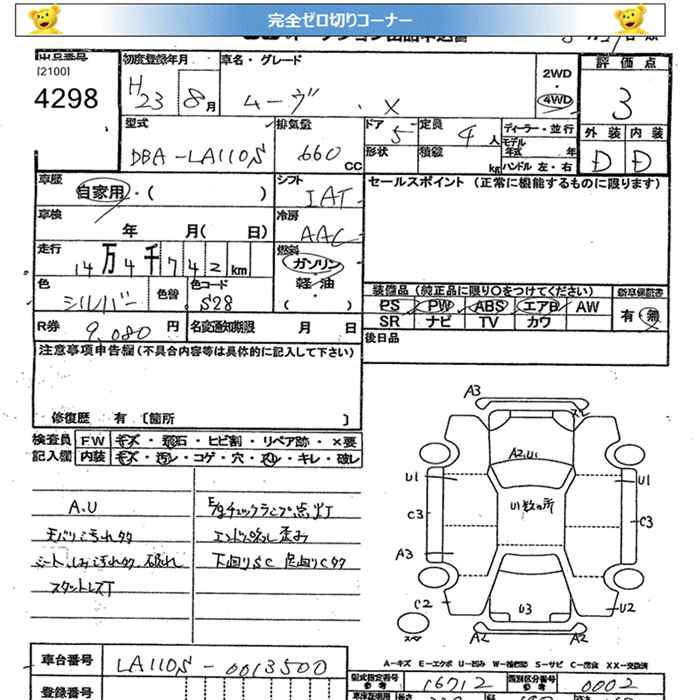 完全ゼロ切りコーナー
出品番号
[2100]
4298
初度登録年月
H 23 8月
車名・グレード
ムーヴ . X
2WD
・
4WD
評価点
3
外装 内装
D D
型式
DBA-LA110S
排気量
660 CC
ドア 5
形状
定員 4 人
積載 kg
ディーラー・並行
モデル年式 年
ハンドル 左・右
車歴 自家用・( )
シフト IAT
セールスポイント (正常に機能するものに限ります)
車検 年 月( 日)
冷房 AAC
走行 14万4千742km
燃料 ガソリン
軽・油
( )
色 シルバー 色替
色コード S28
装備品 (純正品に限り○をつけてください)
PS PW ABS エアB AW
SR ナビ TV カワ
新車保証書
有・無
R券 9,080 円
名変通知期限 月 日
後日品
注意事項申告欄 (不具合内容等は具体的に記入して下さい)
修復歴 有 〔箇所 〕
検査員 FW キズ・飛石・ヒビ割・リペア跡・×要
記入欄 内装 キズ・汚レ・コゲ・穴・スレ・キレ・破レ
A.U
モバリ汚れタタ
シート しみ汚れタタ 破れ
スタットレスT
E/gチェックランプ点灯
下回りSC 足回りCタタ
A3
A2,U1
U1
U1
U1数ヶ所
C3
C3
A3
C2
U3
U2
スペア
A2
A2
A-キズ E-エクボ U-凹み W-補修跡 S-サビ C-腐食 XX-交換済
車台番号 LA110S-0013500
型式指定番号 参考 16712
類別区分番号 参考 0002
登録番号